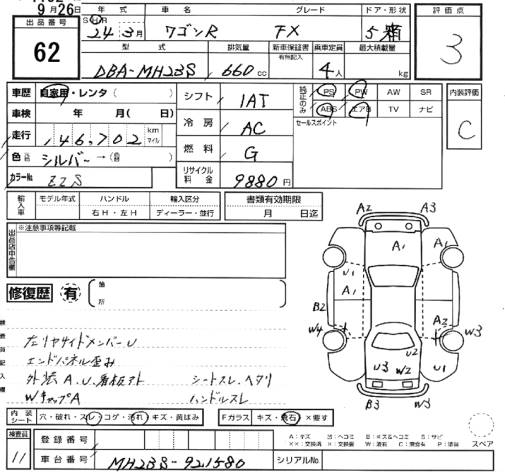 9月26日
出品番号
62
年式 車名 グレード ドア・形状
SH 24年 3月 ワゴンR FX 5
型式 排気量 新車保証書 有無記入 乗車定員 最大積載量
DBA-MH23S 660cc 4人 kg
評価点
3
内装評価
C
車歴 自家用・レンタ( )
車検 年 月( 日)
走行 146,702 km マイル
色 シルバー →( )
カラーNo ZZS
シフト 1AT
冷房 AC
燃料 G
リサイクル料金 9880円
純正のみ PS PW AW SR
ABS エアB TV ナビ
セールスポイント
輸入車 モデル年式 ハンドル 輸入区分 書類有効期限
右H・左H ディーラー・並行 月 日迄
出品店申告欄 ※注意事項等記載
修復歴 有 箇所
左リヤサイドメンバーU
エンドパネル歪み
外装A.U.看板アト シートスレ、ヘタリ
WキャップA ハンドルスレ
A2 A3
A1
U1 A1 A1
B2
W4 A2 W3
U2
U3 W2 U1
B3 W3
内装シート 穴・破れ・スレ・コゲ・汚れ・キズ・黄ばみ Fガラス キズ・飛石・×要す
検査員 11
登録番号
車台番号 MH23S-921580 シリアルNo
A:キズ U:ヘコミ B:キズ&ヘコミ S:サビ